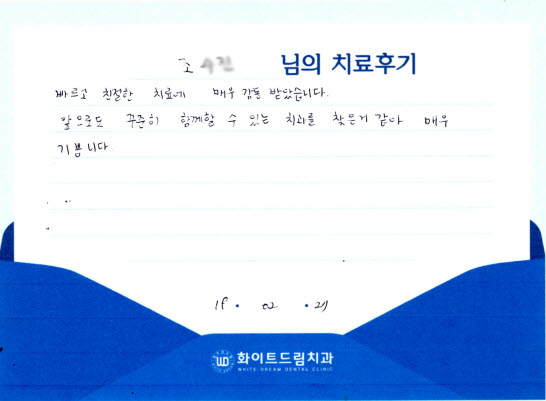 조 님의 치료후기
빠르고 친절한 치료에 매우 감동 받았습니다.
앞으로도 꾸준히 함께할 수 있는 치과를 찾은거 같아 매우
기쁩니다.
19 · 02 · 27
WD 화이트드림치과
WHITE DREAM DENTAL CLINIC